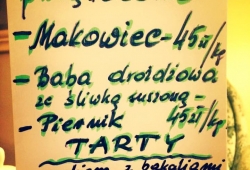 - Makowiec - 45zł/kg
- Baba drożdżowa
ze śliwką suszoną -
- Piernik 45zł/kg
TARTY
z bakaliami